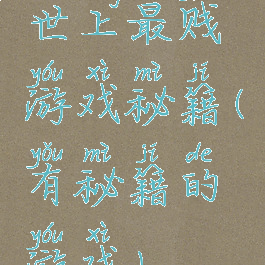 世上最贱
yóu xì mì jí
游戏秘籍(
yǒu mì jí de
有秘籍的
yóu xì
游戏)